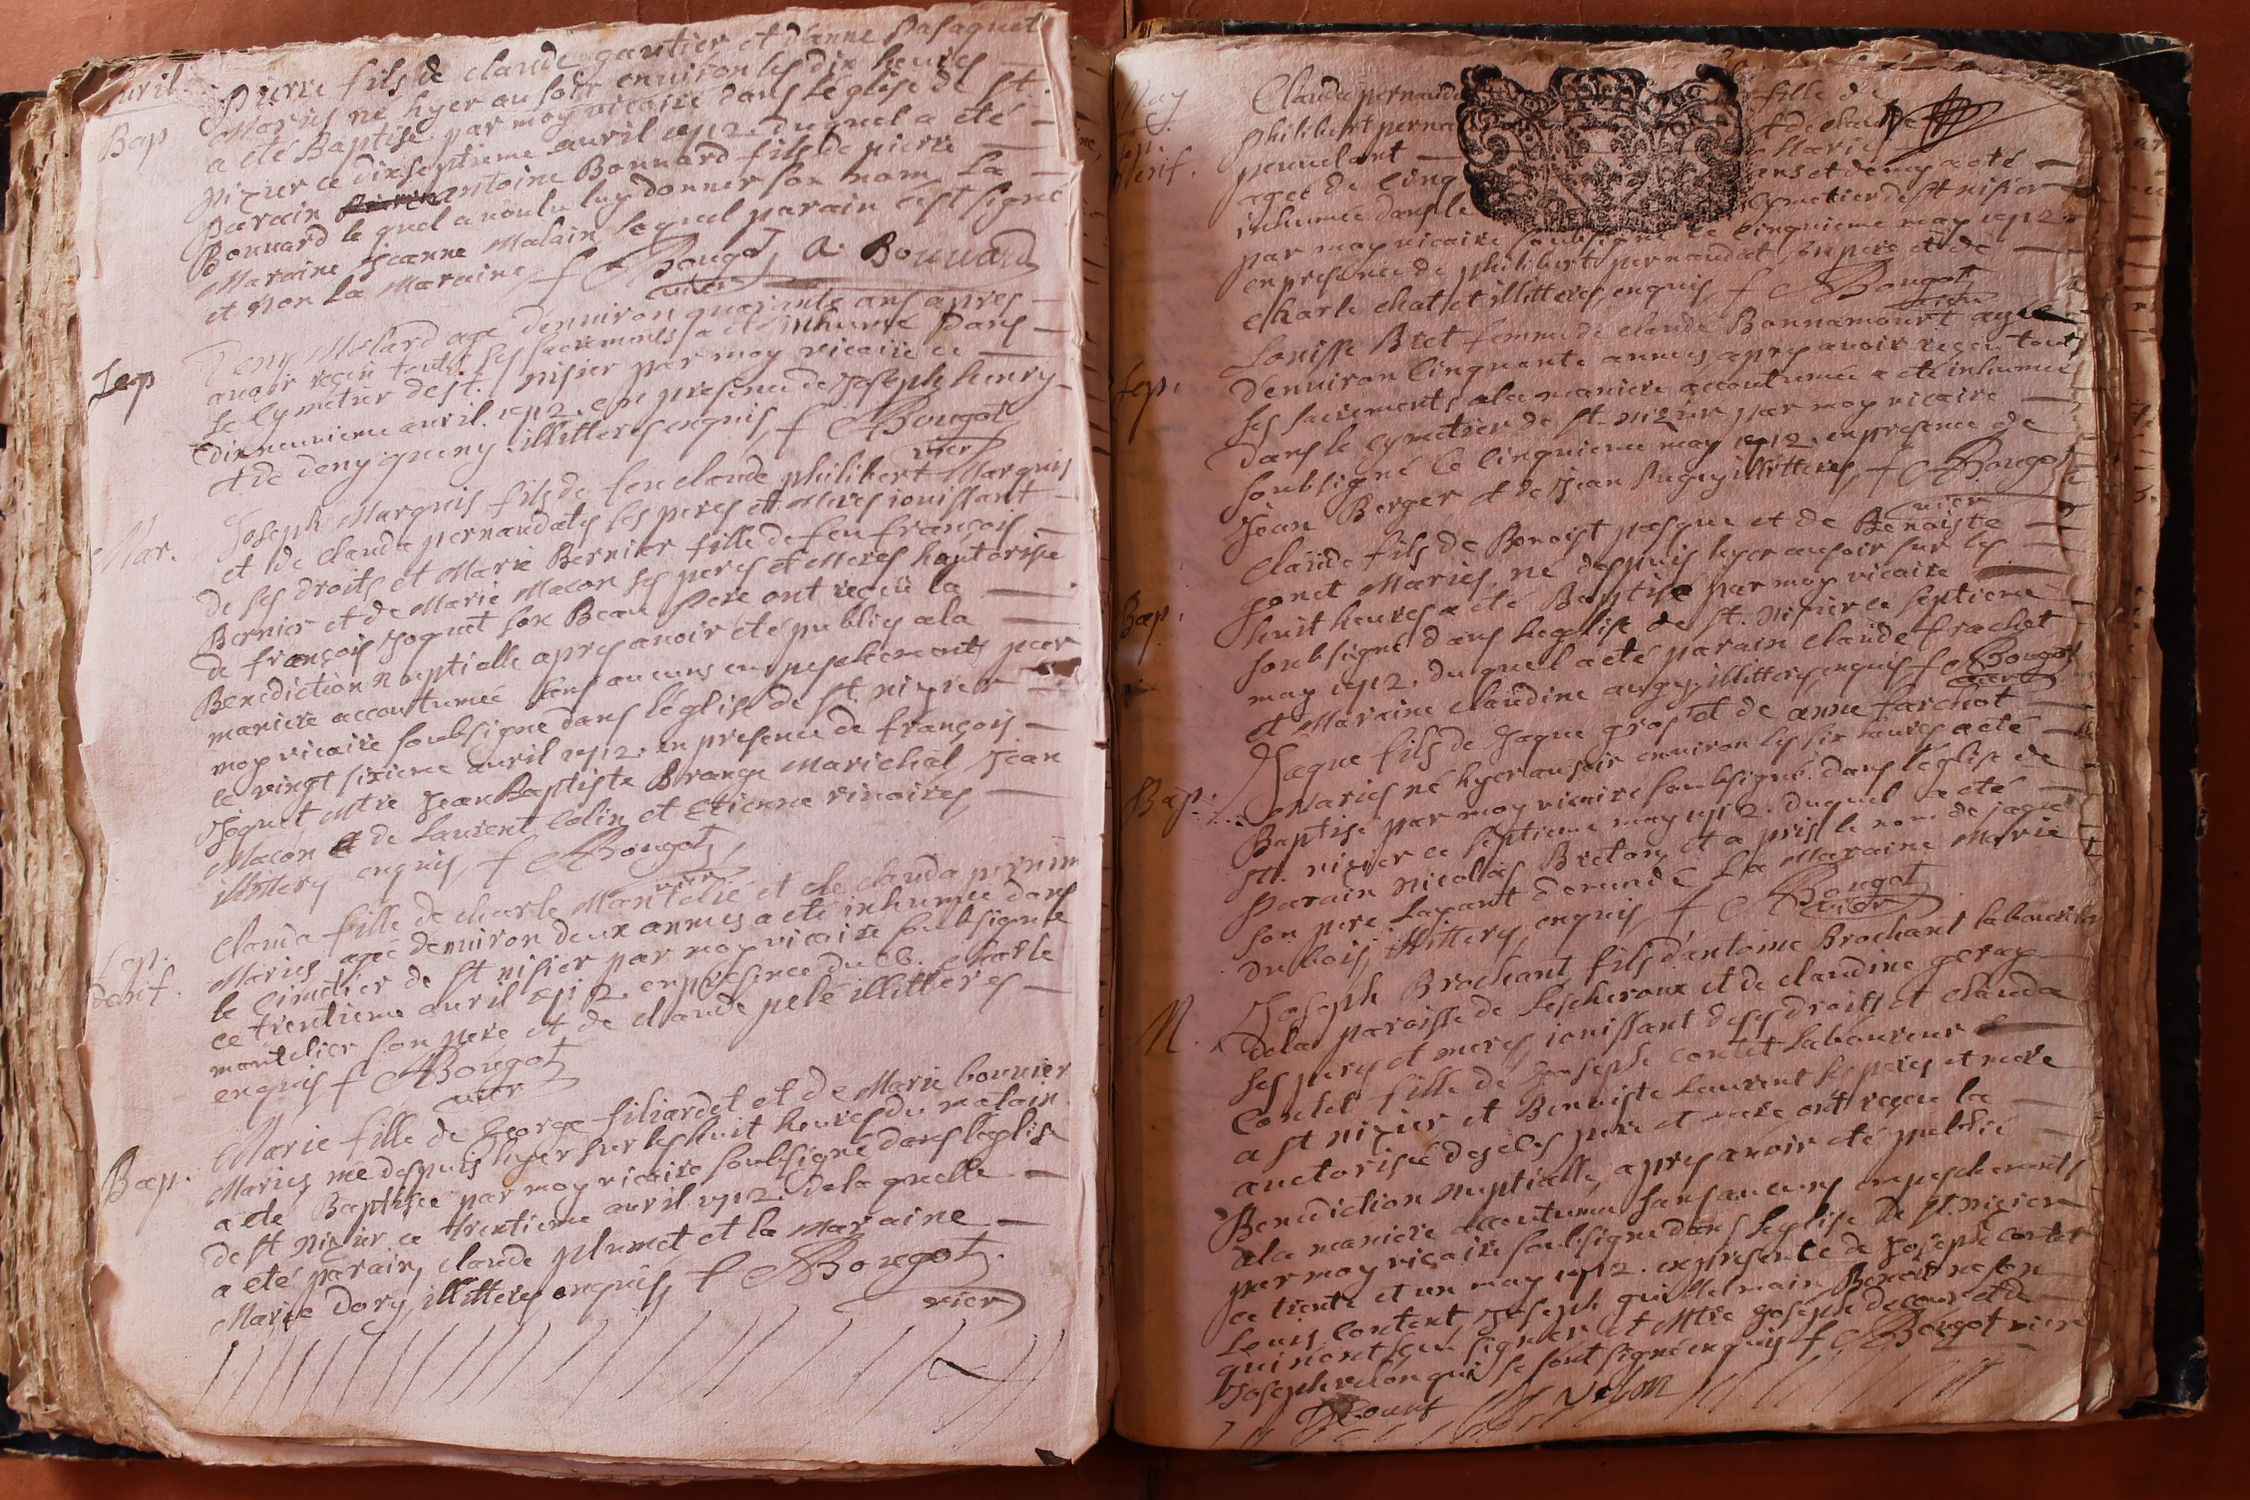 Avril
Pierre fils de claude gautier et d'anne Pasaquet
Bap
Mariés né hyer au soir environ les dix heures
a été Baptisé par moy vicaire dans l'église de St.
Nizier ce dixseptieme avril 1712. duquel a été
parain antoine Bouuard fils de pierre
Bouuard le quel a voulu luy donner son nom la
Maraine Jeanne Malain lequel parain c'est signé
et non la Maraine f Bougot A Bouuard
vier
Sep
Deny Molard age d'enuiron quarante ans apres
auoir reçeu touts les sacrements a été inhumé Dans
le cymetier de St. nisier par moy vicaire ce
dixneuuieme auril 1712. en presence de Joseph henry
et de deny gueny illitteres enquis f Bougot
vier
Mar.
Joseph Marquis fils de feu claude philibert Marquis
et de clauda pernaudats ses peres et Meres iouissant
de ses droits et Marie Bernier fille de feu françois
Bernier et de Marie Macon ses peres et Meres hautorisée
de françois Joguet son Beau Pere ont reçeu la
Benediction nuptialle apres auoir été publies a la
maniere accoutumeé sans aucuns empeschements par
moy vicaire soubsigné dans l'église de St. nizier
ce vingt sixieme auril 1712. en presence de françois
Joguet Mtre Jean Baptiste Brange Marichal Jean
Macon et de Laurent Colin et Etienne
illitterés enquis, f Bougot
vier
Sep.
d'enf.
Clauda fille de charle Mantelié et de clauda
Mariés, ageé d'enuiron deux annees a été inhumée dans
le Cimetier de St nisier par moy vicaire soubsigné
ce trentieme auril 1712. en presence du charle
montelier son pere et de claude pelé illitteres
enquis f Bougot
vier
Bap.
Marie fille de George filiardet et de Marie bouuier
Mariés née despuis hyer sur les huit heures du matain
a été Baptisée par moy vicaire soubsigné dans l'eglise
de St Nizier ce trentieme auril 1712. de la quelle
a été parain, claude plumet et la Maraine
Marie Dory illitteres enquis, f Bougot.
vier
May
Sep.
d'enf.
Clauda pernauda fille de
Philibert perna et de claud
Mariés
ageé de Cinq ans et demy a été
inhumée dans le Cymetier de St nisier
par moy vicaire soubsigné ce Cinquieme may 1712.
en presence de philibert pernaudat son pere et de
Charle chatet illitteres enquis f Bougot
vier
Sep.
Louisse Bret femme de claude Bonnamourt ageé
d'enuiron Cinquante annees apres auoir reçeu touts
ses sacrements a la maniere accoutumeé a été inhumeé
dans le cymetier de St. nizier par moy vicaire
soubsigné le Cinquieme may 1712. en presence de
Jean Berger et de Jean illitteres, f Bougot
vier
Bap.
Claude fils de Benoist pasque et de Benoiste
Gonet Mariés, né despuis hyer au soir sur les
huit heures a été Baptisé par moy vicaire
soubsigné dans l'eglise de St. Nisier ce septieme
may 1712. duquel a été parain claude frachet
et Maraine claudine augey. illitteres enquis f Bougot
vier
Bap.
Jaque fils de Jaque gros et de anne farchot
Mariés né hyer au soir enuiron les six heures a été
Baptisé par moy vicaire soubsigné. dans l'église de
St. nizier ce septieme may 1712. duquel a été
Parain nicolas Breton, et a pris le nom de Jaque
son pere l'ayant demandé La Maraine Marie
Du bois, illitterés, enquis, f Bougot
vier
M.
Joseph Brochant, fils d'antoine Brochant laboureur
de la paroisse de Lescheroux et de claudine geray
ses peres et meres, iouissant de ses droits et clauda
Contet fille de Joseph contet Laboureur
a St nizier et Benoiste Laurent ses peres et mere
auctorisée desdits pere et mere ont reçeu la
Benediction nuptialle, apres auoir été publié
a la maniere accoutumee sans aucuns empeschements
par moy vicaire soubsigné dans l'eglise de St. nizier
ce trente et un may 1712. en presence de Joseph contet
Louis content, Joseph guillelmain, Benoit
qui n'ont sceu signer et Mtre Joseph decour et de
Joseph velon qui se sont signé enquis f Bougot vier
Decourt
velon